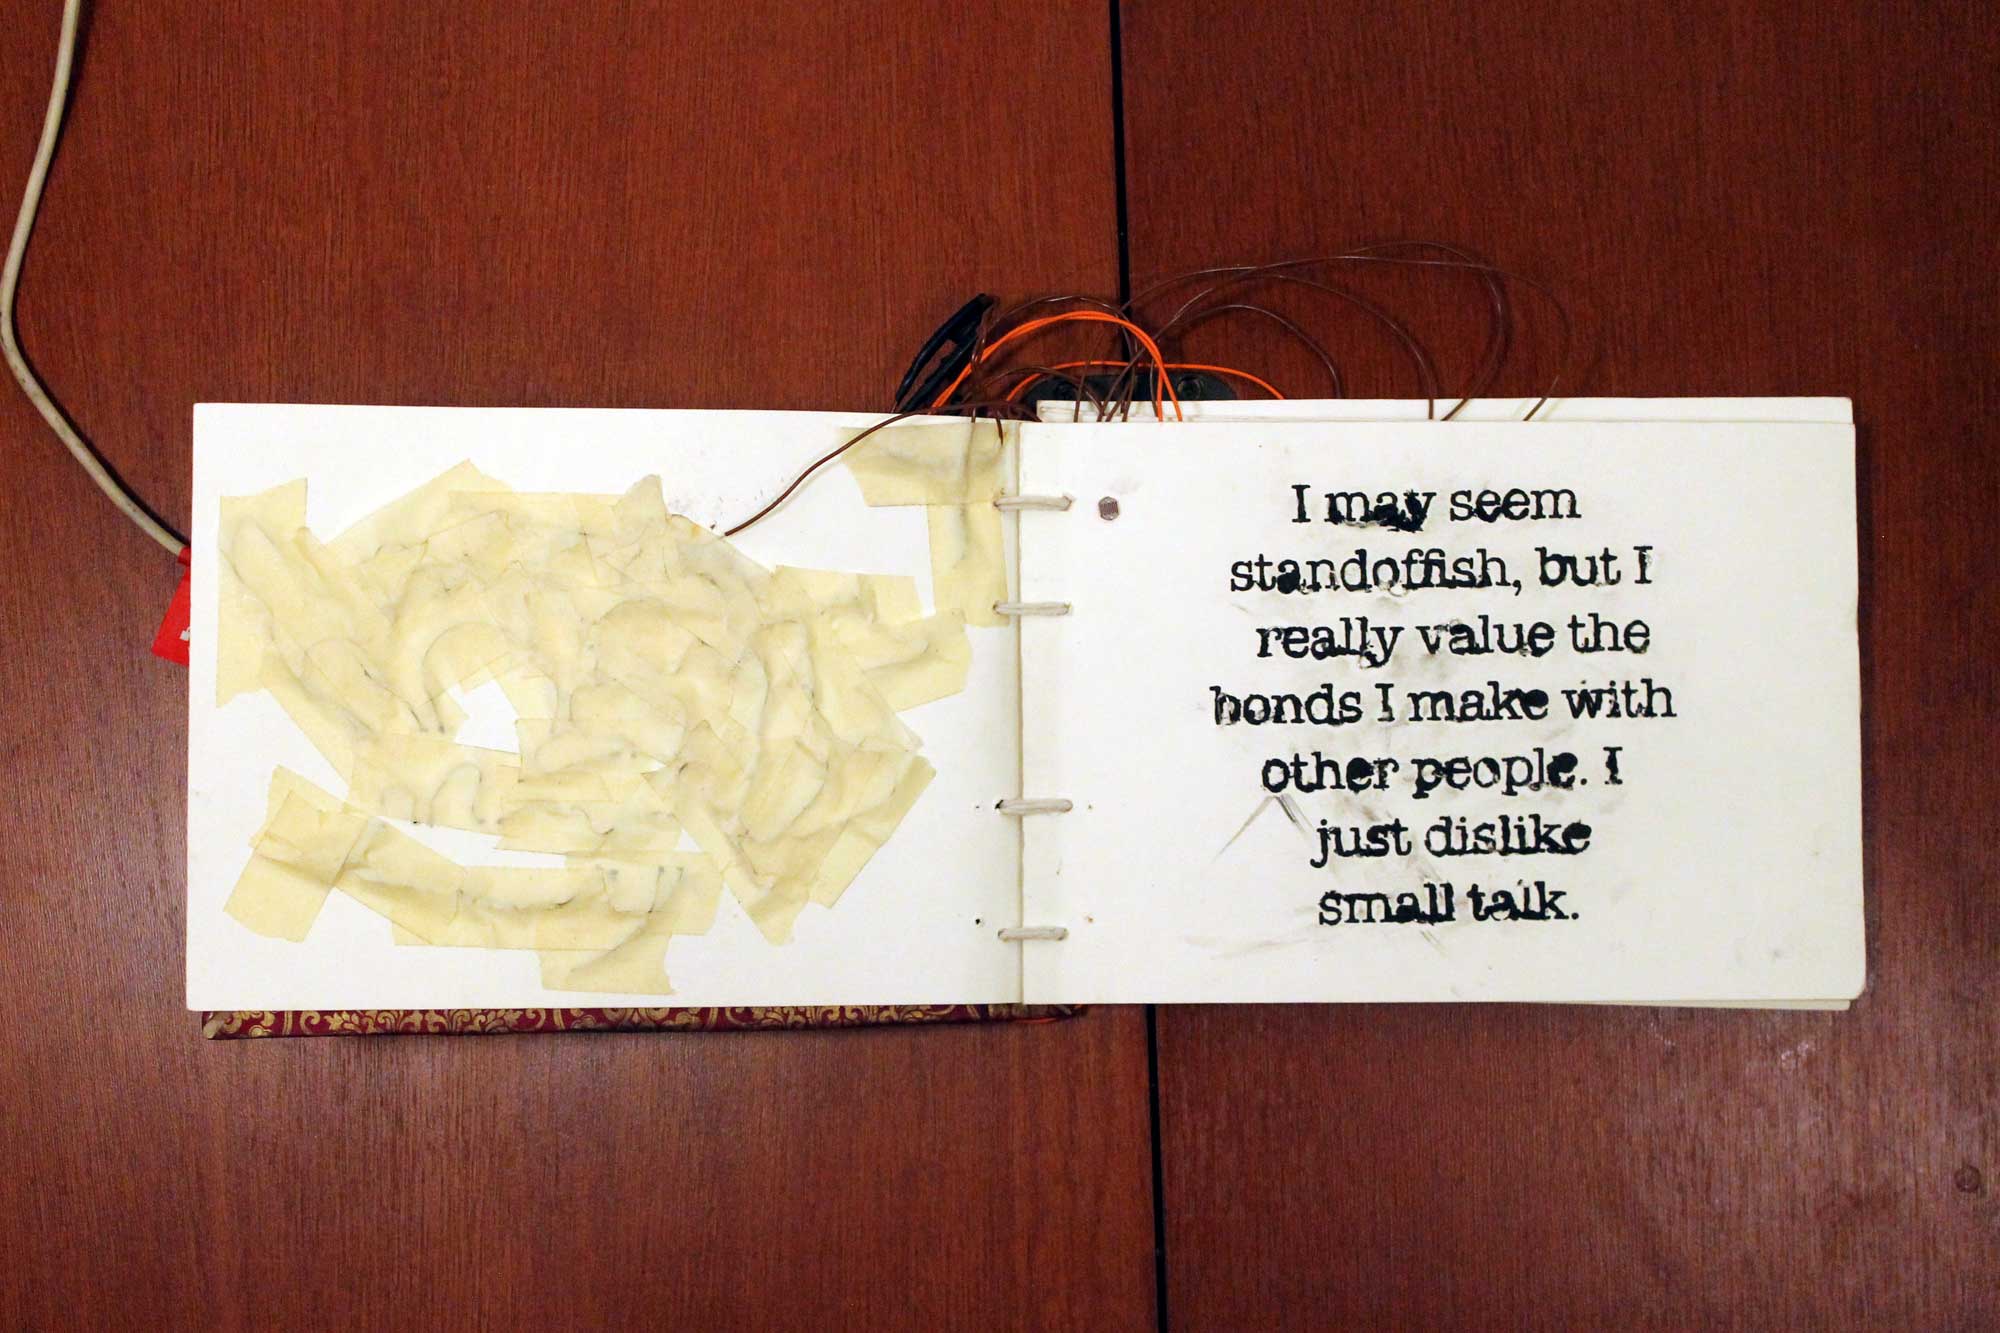 I may seem
standoffish, but I
really value the
bonds I make with
other people. I
just dislike
small talk.